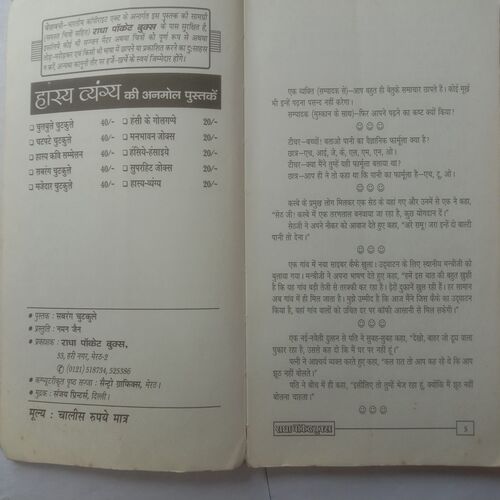 चेतावनी–भारतीय कॉपीराइट एक्ट के अन्तर्गत इस पुस्तक की सामग्री
(समस्त चित्रों सहित) राधा पॉकेट बुक्स के पास सुरक्षित है,
इसलिये कोई भी सज्जन मैटर अथवा चित्रों को पूर्ण रूप से अथवा
तोड़-मरोड़कर एवं किसी भी भाषा में छापने या प्रकाशित करने का दु:साहस
न करें, अन्यथा कानूनी तौर पर हर्जे-खर्चे के स्वयं जिम्मेदार होंगे।
हास्य व्यंग्य की अनमोल पुस्तकें
चुलबुले चुटकुले 40/- हंसी के गोलगप्पे 20/-
चटपटे चुटकुले 40/- मनभावन जोक्स 20/-
हास्य कवि सम्मेलन 40/- हंसिये-हंसाइये 20/-
सबरंग चुटकुले 40/- सुपरहिट जोक्स 20/-
मजेदार चुटकुले 40/- हास्य-व्यंग्य 20/-
● पुस्तक : सबरंग चुटकुले
● प्रस्तुति : नमन जैन
● प्रकाशक : राधा पॉकेट बुक्स,
53, हरी नगर, मेरठ-2
✆ (0121) 518734, 525386
● कम्प्यूटरीकृत पृष्ठ सज्जा : सैन्ट्रो ग्राफिक्स, मेरठ।
● मुद्रक : संजय प्रिन्टर्स, दिल्ली।
मूल्य : चालीस रुपये मात्र
एक व्यक्ति (सम्पादक से)–आप बहुत ही बेतुके समाचार छापते हैं। कोई मूर्ख
भी इन्हें पढ़ना पसन्द नहीं करेगा।
सम्पादक (मुस्कान के साथ)–फिर आपने पढ़ने का कष्ट क्यों किया?
☺☺☺
टीचर–बच्चों! बताओ पानी का वैज्ञानिक फार्मूला क्या है?
छात्र–एच, आई, जे, के, एल, एम, एन, ओ।
टीचर–क्या मैंने तुम्हें यही फार्मूला बताया था?
छात्र–आप ही ने तो कहा था कि पानी का फार्मूला है–एच, टू, ओ।
☺☺☺
कस्बे के प्रमुख लोग मिलकर एक सेठ के यहां गए और उनमें से एक ने कहा,
"सेठ जी! कस्बे में एक तरणताल बनवाया जा रहा है, कुछ योगदान दें।"
सेठजी ने अपने नौकर को आवाज देते हुए कहा, "अरे रामू! जरा इन्हें दो बाल्टी
पानी तो देना।"
☺☺☺
एक गांव में नया साइबर कैफे खुला। उद्घाटन के लिए स्थानीय मन्त्रीजी को
बुलाया गया। मन्त्रीजी ने अपना भाषण देते हुए कहा, "हमें इस बात की बहुत खुशी
है कि यह गांव बड़ी तेजी से तरक्की कर रहा है। ढेरों दुकानें खुल रही हैं। हर सामान
अब गांव में ही मिल जाता है। मुझे उम्मीद है कि आज मैंने जिस कैफे का उद्घाटन
किया है, वहां गांव वालों को उचित दर पर कॉफी आसानी से मिल सकेगी।"
☺☺☺
एक नई-नवेली दुल्हन से पति ने सुबह-सुबह कहा, "देखो, बाहर जो दूध वाला
पुकार रहा है, उससे कह दो कि मैं घर पर नहीं हूं।"
पत्नी ने आश्चर्य व्यक्त करते हुए कहा, "कल रात तो आप कह रहे थे कि आप
झूठ नहीं बोलते।"
पति ने बीच में ही कहा, "इसीलिए तो तुम्हें भेज रहा हूं, क्योंकि मैं झूठ नहीं
बोलना चाहता।"
☺☺☺
राधा पॉकेट बुक्स 5